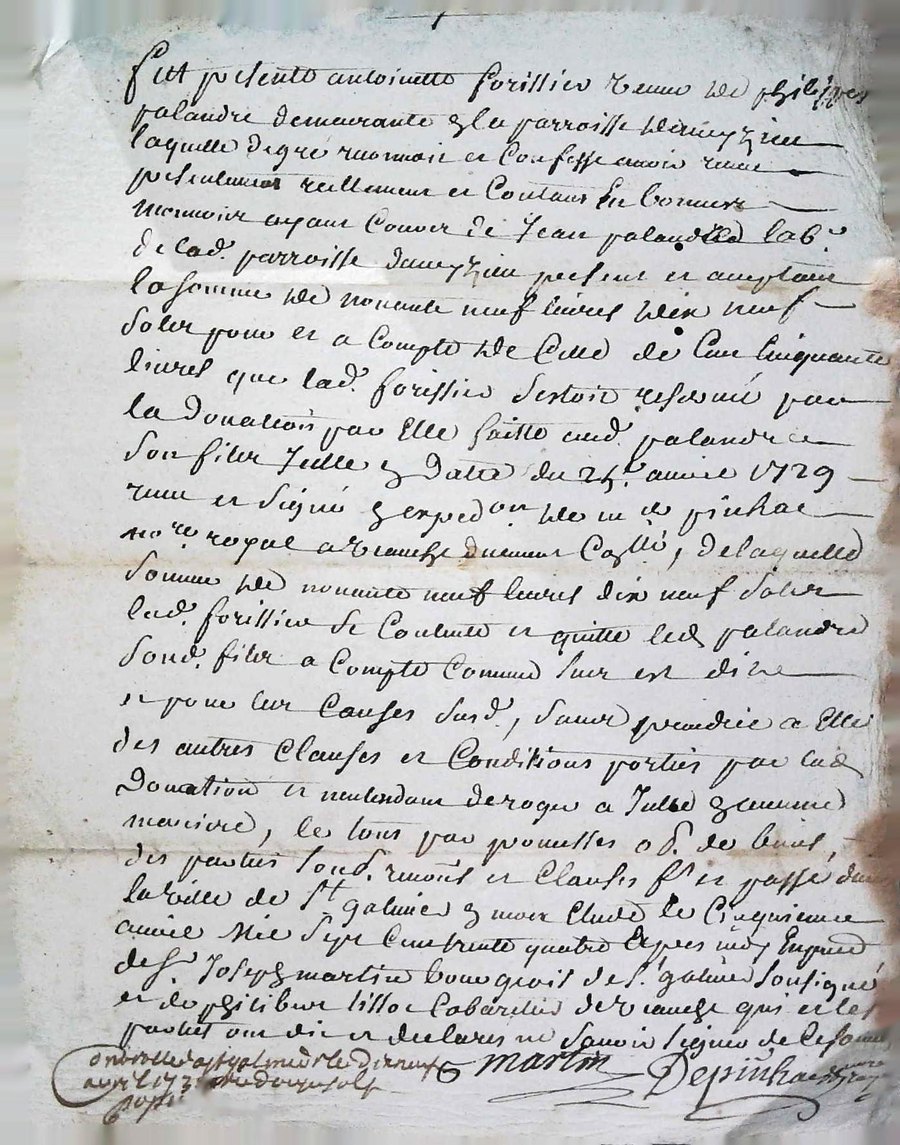 fut presente antoinette forissier veuve de philipes
palandre demeurante en la parroisse daveyzieu
laquelle de gré reconnoit et Confesse avoir receu
presentement reellement et Contant En bonnes
monnoie ayant Cours de Jean palandre lab.r
de lad. parroisse daveyzieu present et acceptant
la somme de nonante neuf livres dix neuf
solz pour et a Compte de Celle de Cent Cinquante
livres que lad. forissier sestoit reservée par
la Donation par Elle faitte aud. palandre
son filz Jcelle en Datte du avril 1729
receu et signé en exped.on de m.e pinhac
no.re royal a Veauche, de laquelle
somme de nonante neuf livres dix neuf solz
lad. forissier se Contente et quitte led palandre
sond. filz a Compte Comme sus est dit
et pour les Causes susd., sans preiudice a Elle
des autres Clauses et Conditions portées par lad
Donation et nentendant deroger a Jcelle en aucune
maniere, le tout par promesses ob. de biens,
des parties soub. renons et Clauses f.t et passé dans
la ville de S.t galmier en mon Etude le Cinquieme
avril Mil Sept Cent trente quatre Apres midy En pnce
de S.r Joseph martin bourgeois de S.t galmier soussigné
et de philibert tissot Cabaretier de Veauche qui et les
parties ont dit et declarés ne savoir signer de Ce somés
martin Depinhac
Controllé a St galmier le dix neuf
avril 173 Receu douze solz